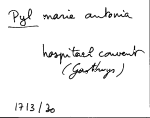 Pyl marie antonia
hospitaal convent
(Gasthuys)
17 13 / 20